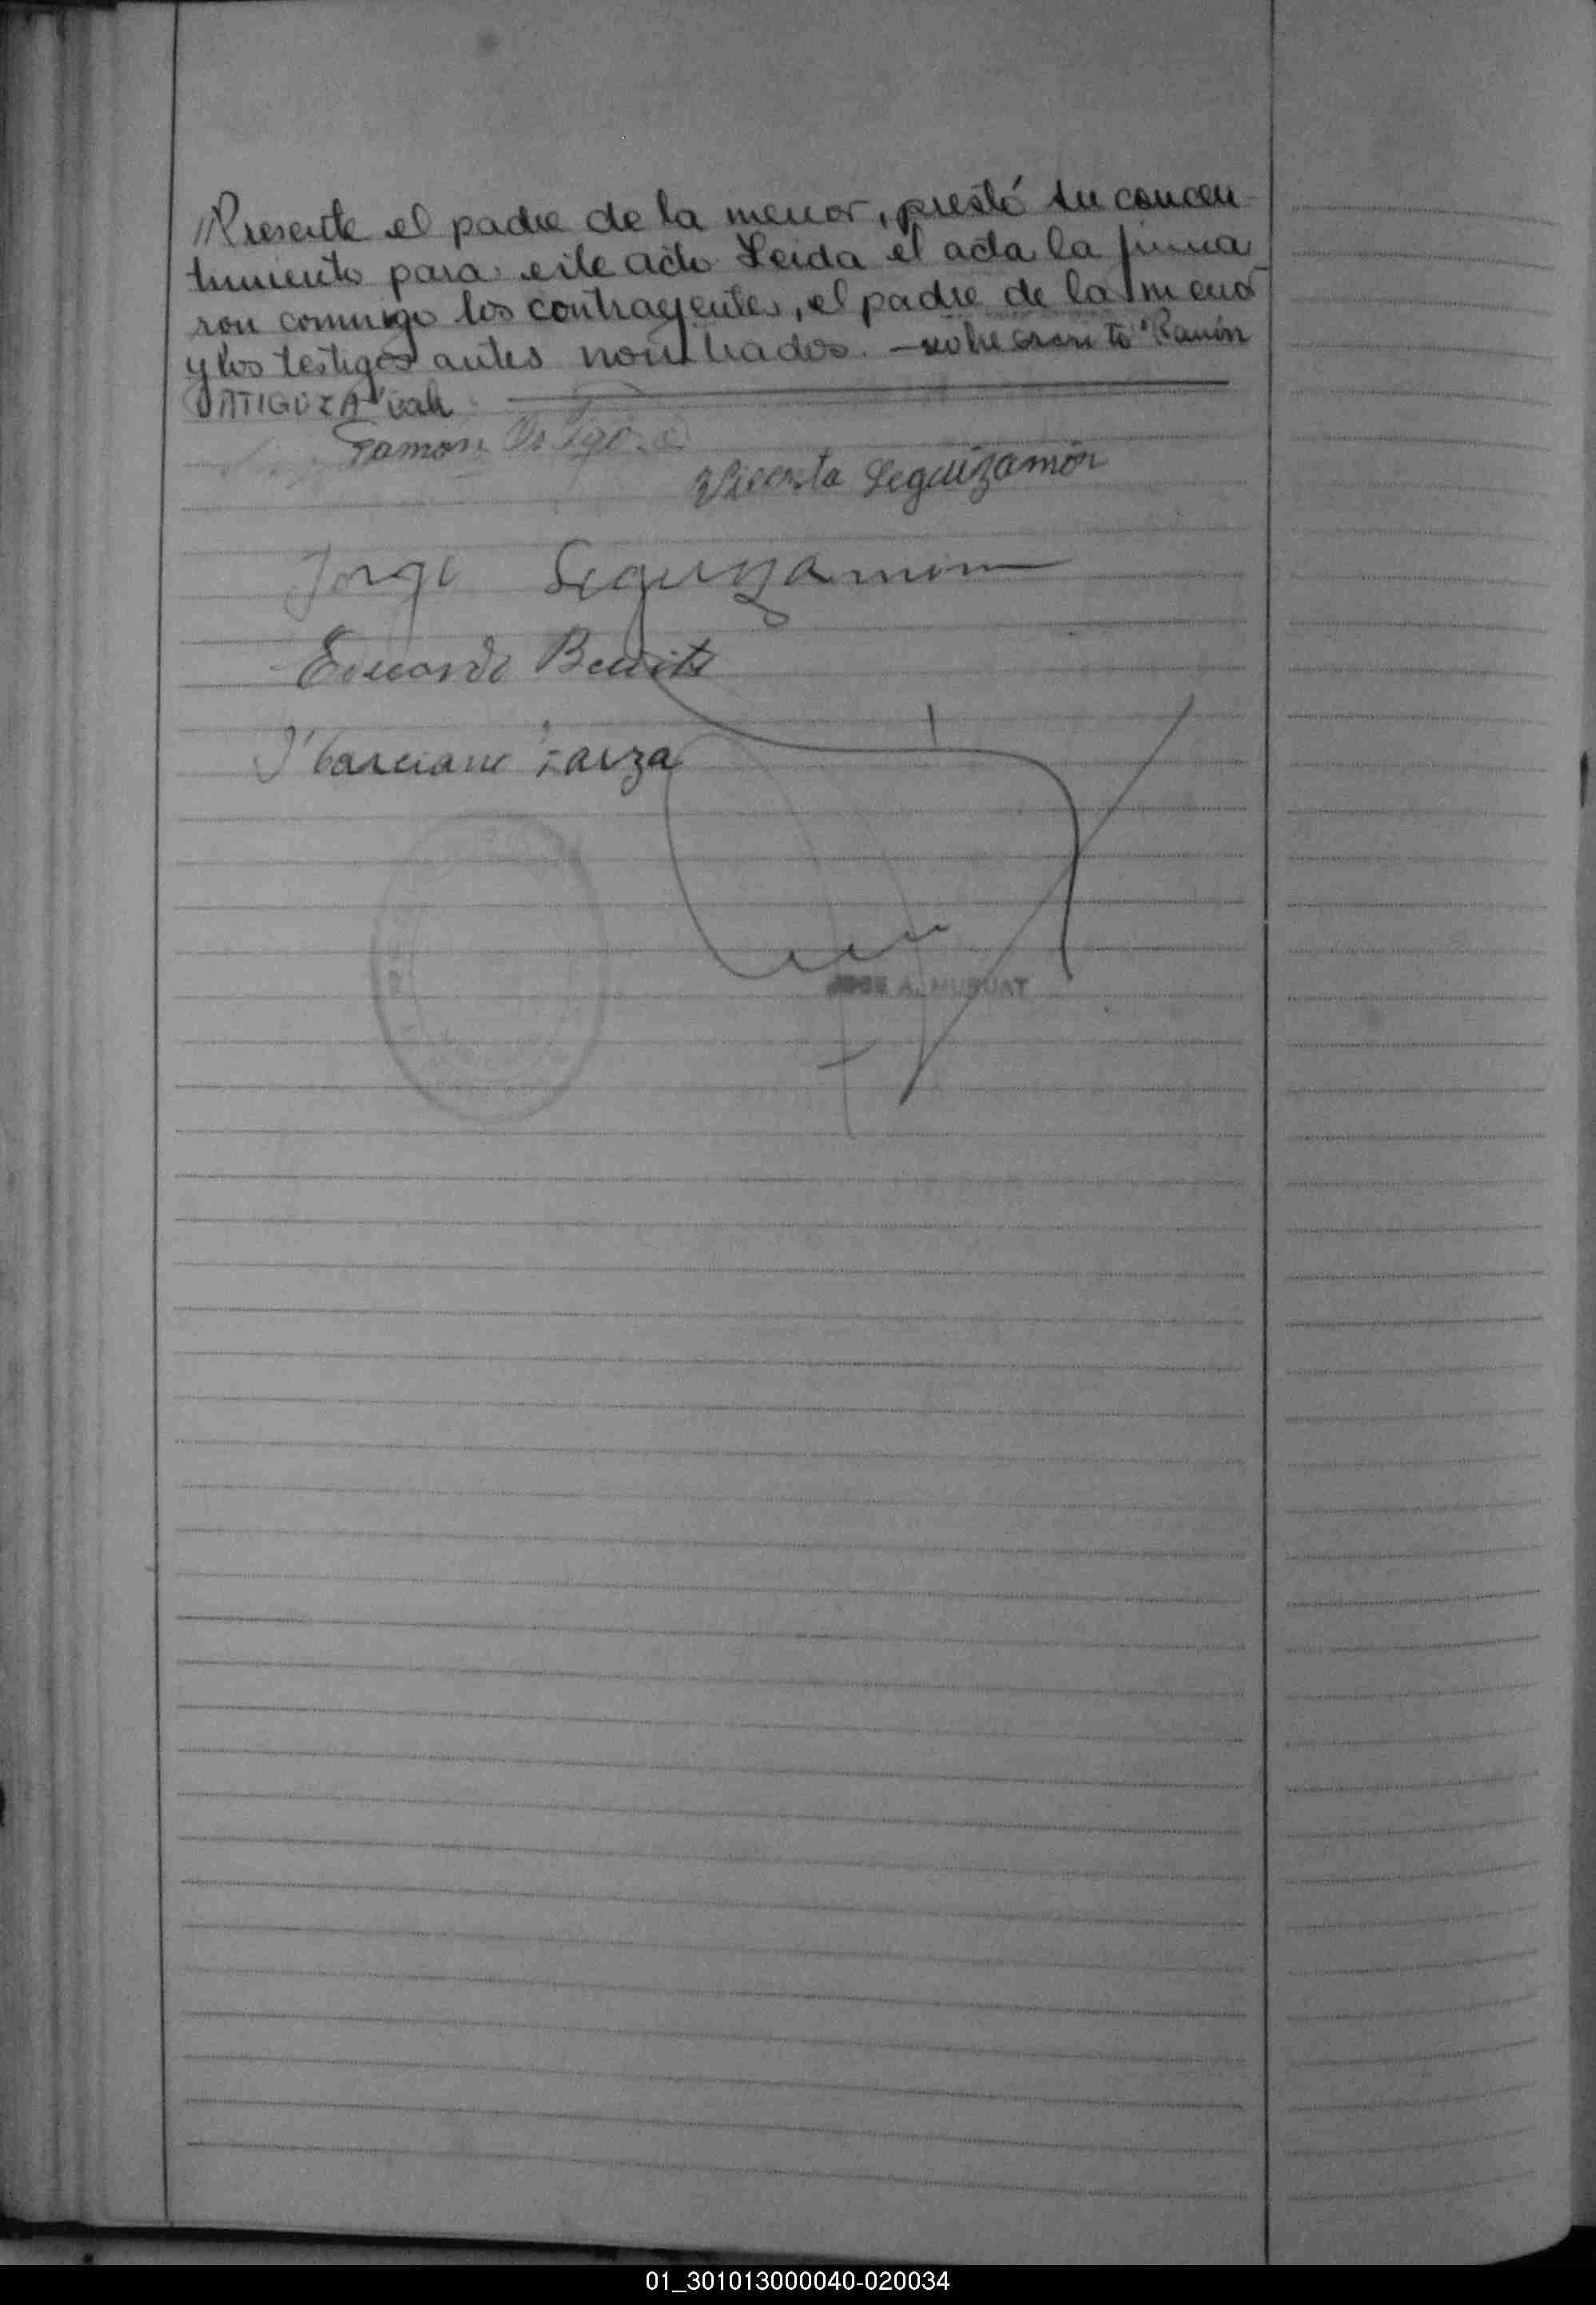 //Presente el padre de la menor, prestó su concen-
timiento para este acto Leida el acta la firma
ron conmigo los contrayentes, el padre de la menor
y los testigos antes nombrados. - sobrescrito "Ramón
VATIGOZA" vale
Ramón
Vicenta Leguizamón
Jorge Leguizamon
Eduardo Benite
Marciano Zarza
JOSE A. MURUAT
01_301013000040-020034